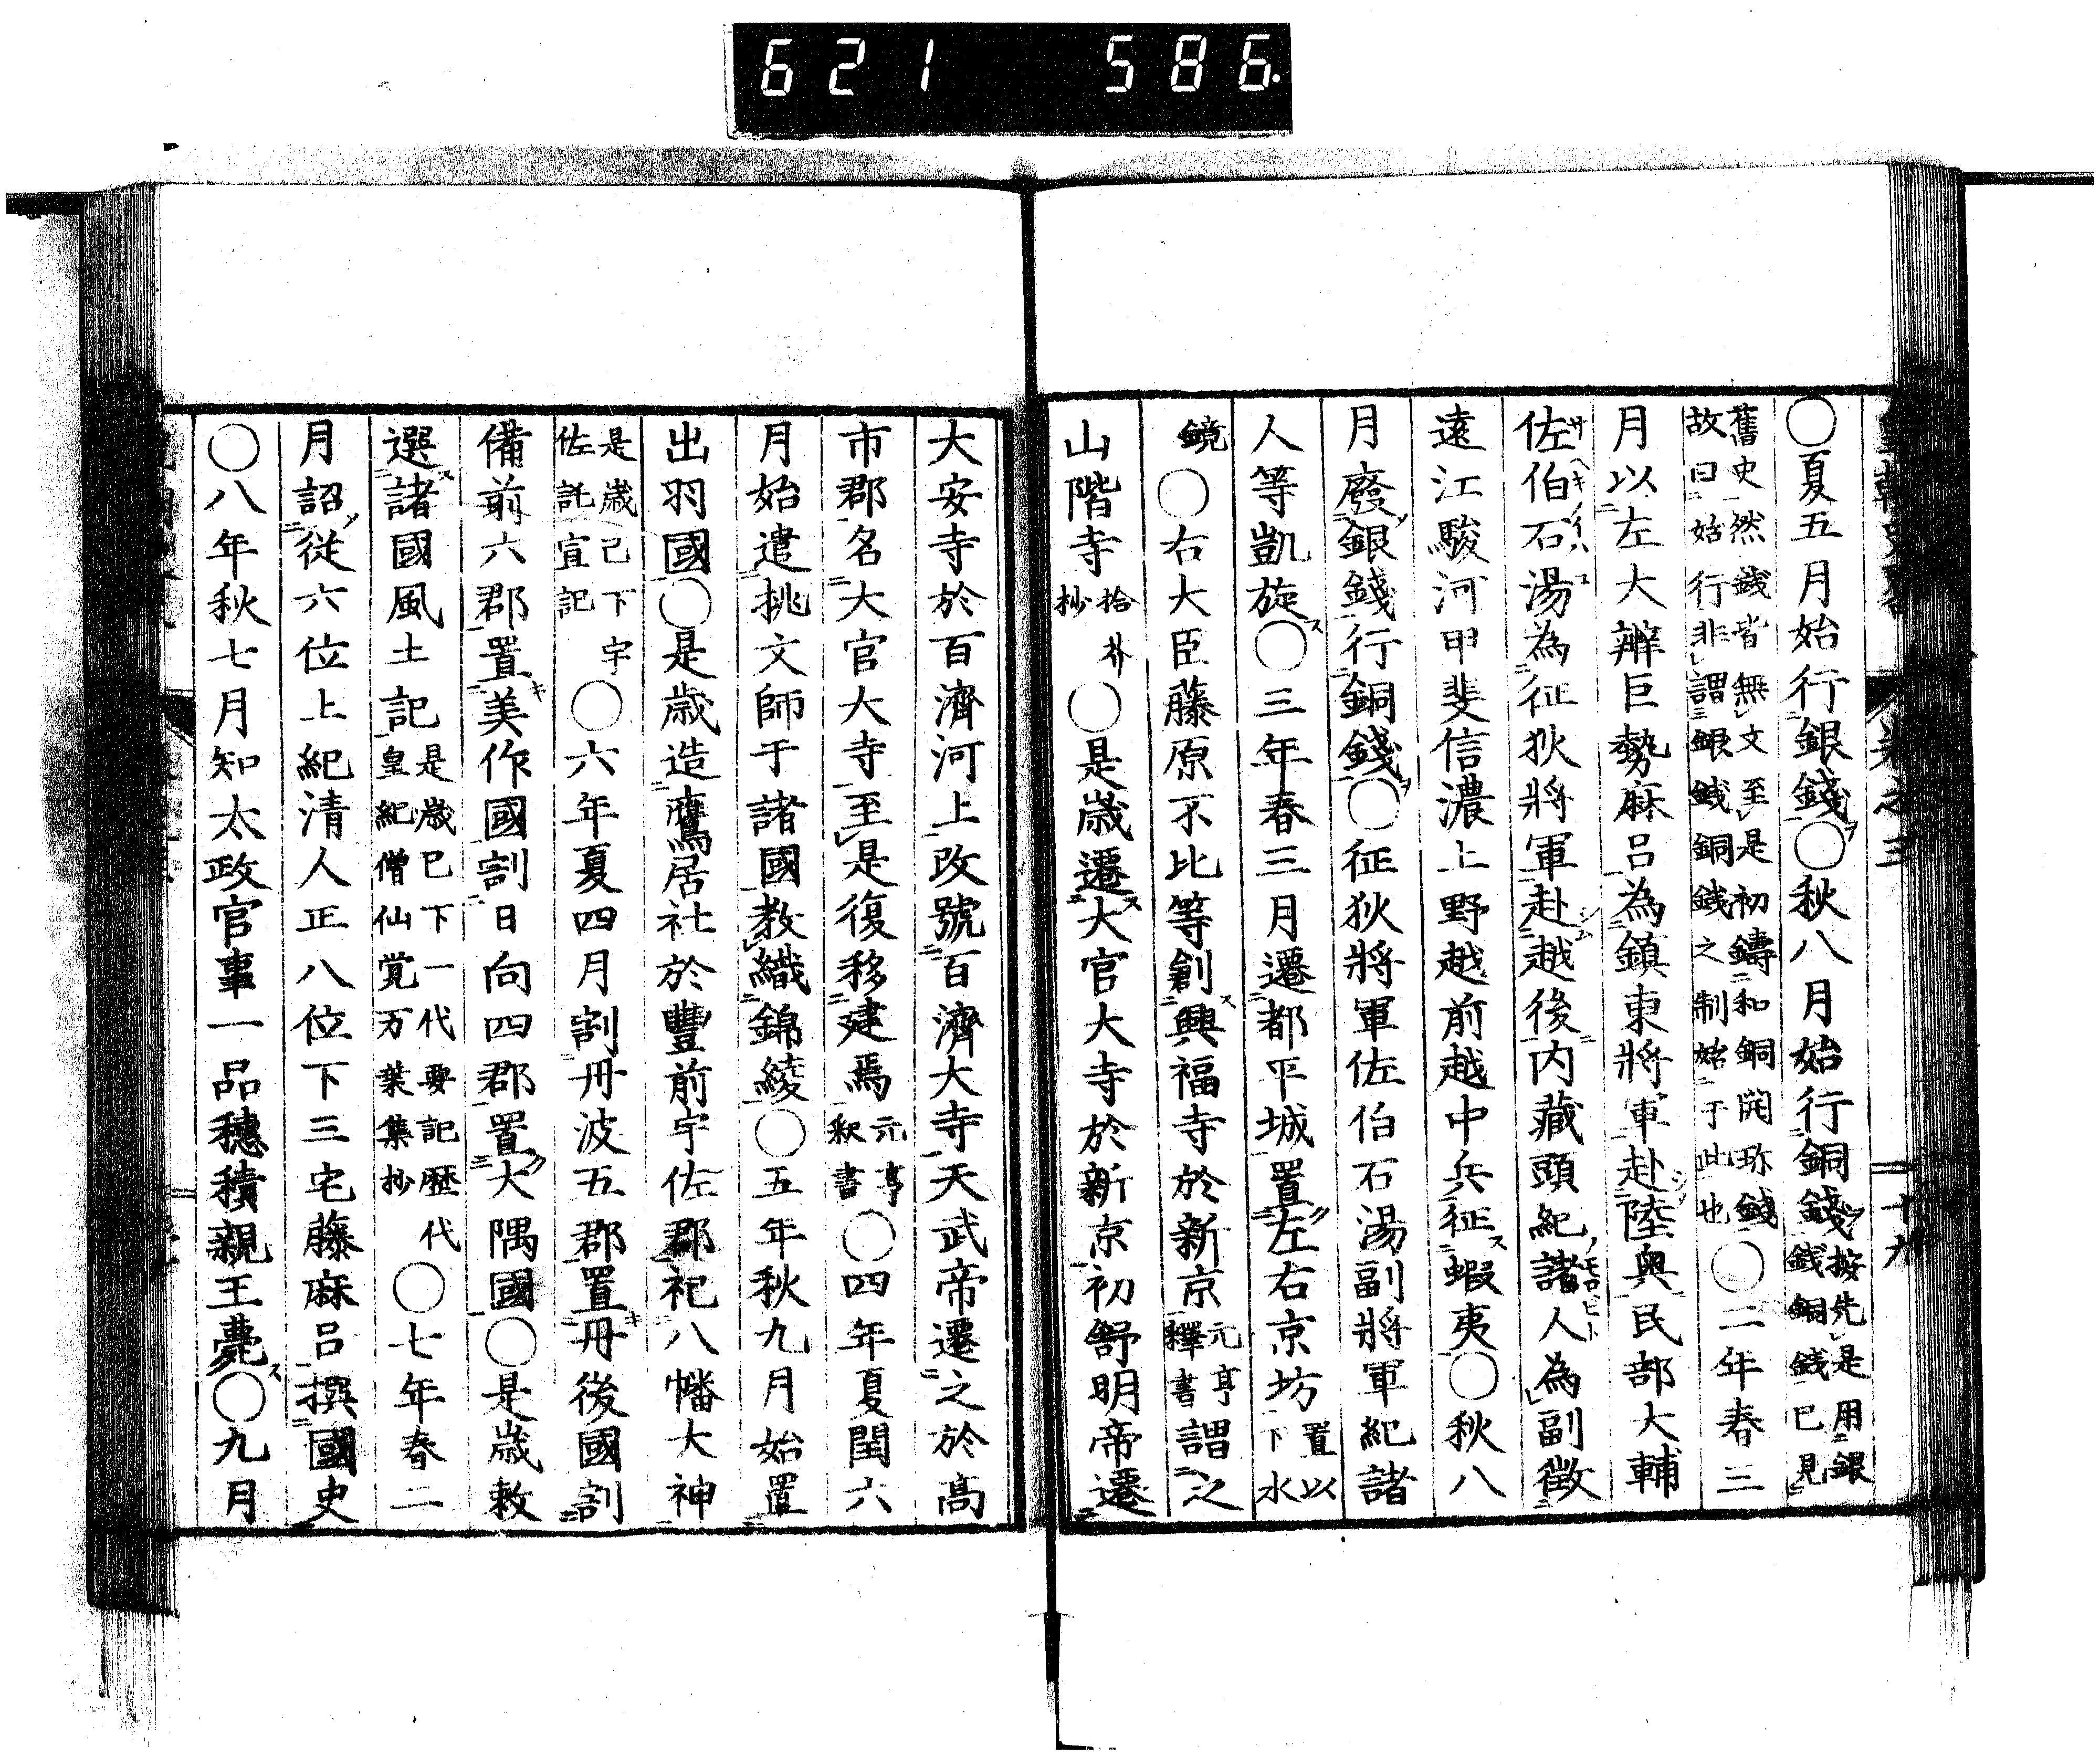 621 586
〇夏五月始行銀錢〇秋八月始行銅錢按先是用銀錢銅錢已見
舊史然錢皆無文至是初鑄和銅開珎錢故曰始行非謂銀錢銅錢之制始于此也〇二年春三
月以左大辨巨勢麻呂為鎮東將軍赴陸奧民部大輔
佐伯石湯為征狄將軍赴越後内藏頭紀諸人為副徵
遠江駿河甲斐信濃上野越前越中兵征蝦夷〇秋八
月廢銀錢行銅錢〇征狄將軍佐伯石湯副將軍紀諸
人等凱旋〇三年春三月遷都平城置左右京坊置以下水
鏡〇右大臣藤原不比等創興福寺於新京元亨釋書謂之
山階寺拾芥抄〇是歲遷大官大寺於新京初舒明帝遷
大安寺於百濟河上改號百濟大寺天武帝遷之於高
市郡名大官大寺至是復移建焉元亨釈書〇四年夏閏六
月始遣挑文師于諸國教織錦綾〇五年秋九月始置
出羽國〇是歲造鷹居社於豐前宇佐郡祀八幡大神
是歲已下宇佐託宣記〇六年夏四月割丹波五郡置丹後國割
備前六郡置美作國割日向四郡置大隅國〇是歲敕
選諸國風土記是歲已下一代要記歷代皇紀僧仙覚万葉集抄〇七年春二
月詔從六位上紀清人正八位下三宅藤麻呂撰國史
〇八年秋七月知太政官事一品穗積親王薨〇九月